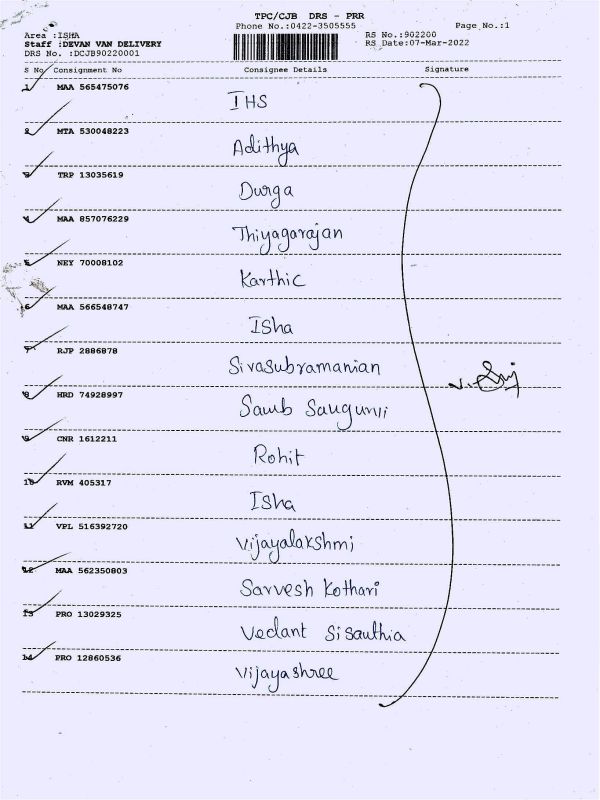 TPC/CJB DRS - PRR
Phone No.:0422-3505555 Page No.:1
Area :ISHA RS No.:902200
Staff :DEVAN VAN DELIVERY RS Date:07-Mar-2022
DRS No. :DCJB90220001
S No Consignment No Consignee Details Signature
1 MAA 565475076
IHS
2 MTA 530048223
Adithya
3 TRP 13035619
Durga
4 MAA 857076229
Thiyagarajan
5 NEY 70008102
Karthic
6 MAA 566548747
Isha
7 RJP 2886878
Sivasubramanian
8 HRD 74928997
9 CNR 1612211
Rohit
10 RVM 405317
Isha
11 VPL 516392720
Vijayalakshmi
12 MAA 562350803
Sarvesh Kothari
13 PRO 13029325
Vedant Sisauthia
14 PRO 12860536
Vijayashree